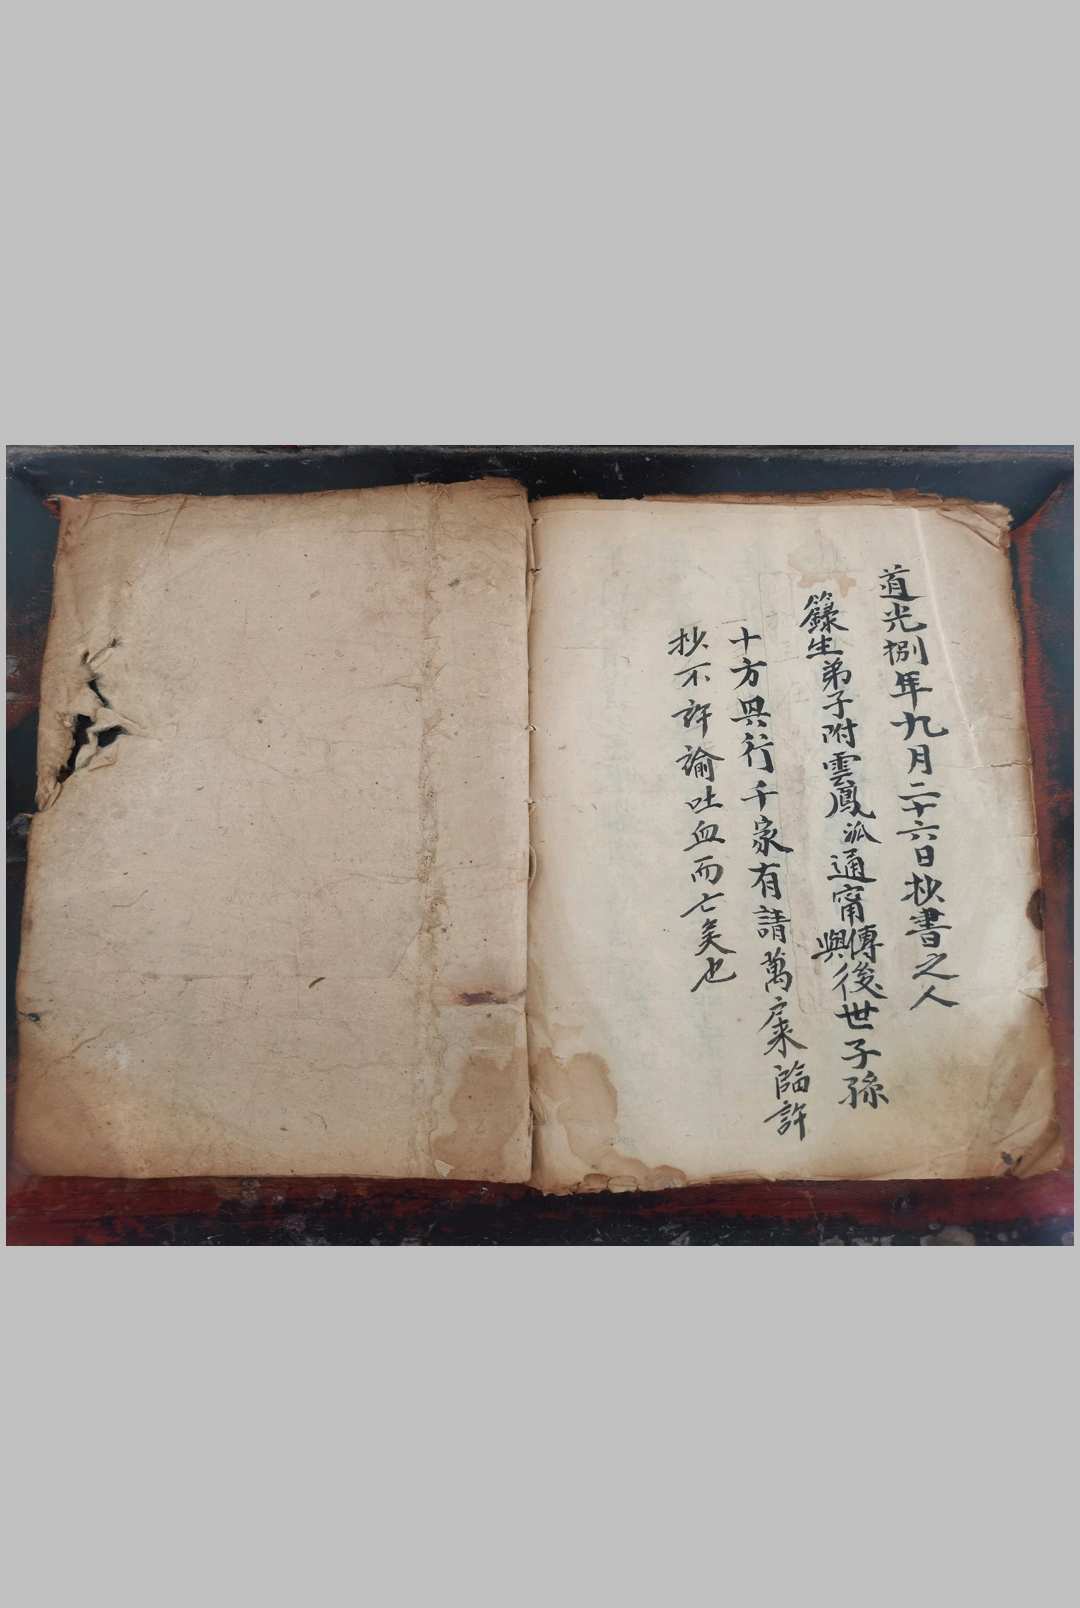 道光捌年九月二十六日抄書之人
籙生弟子附雲鳳派通甯傳與後世子孫
十方興行千家有請萬戶來臨許
抄不許諭吐血而亡矣也